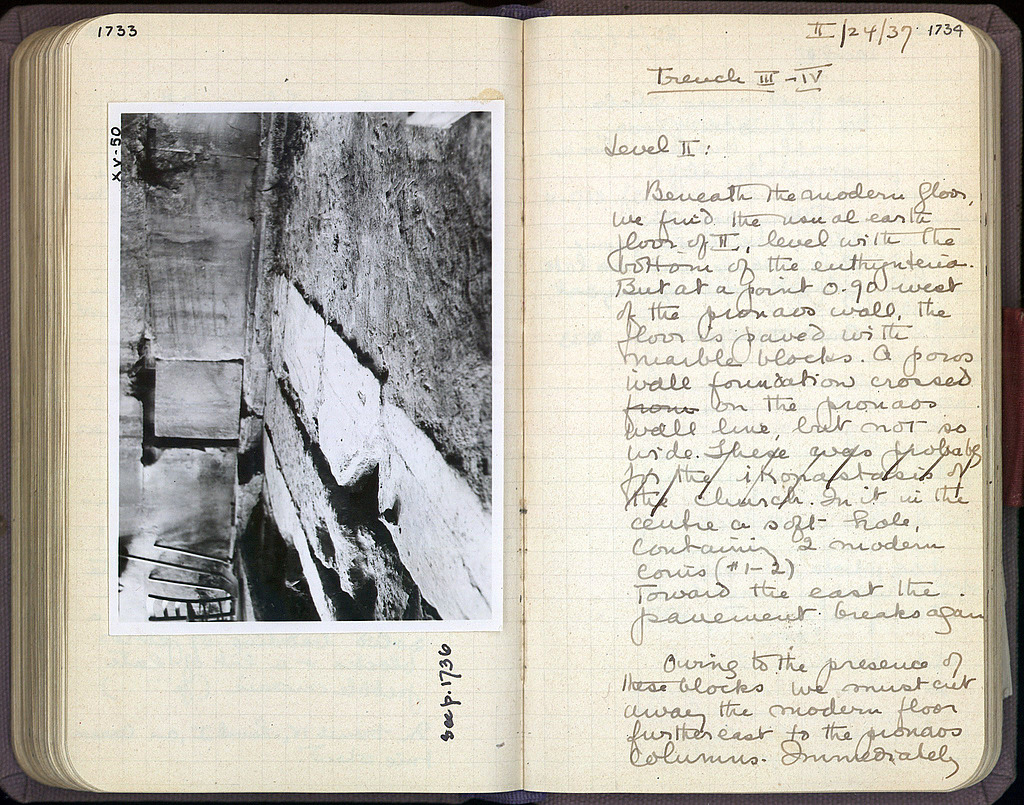 1733
XV-50
see p. 1736
II/24/37 1734
Trench III - IV
Level II:
Beneath the modern floor,
we find the usual earth
floor of II, level with the
bottom of the euthynteria.
But at a point 0.90 west
of the pronaos wall, the
floor is paved with
marble blocks. A poros
wall foundation crossed
from on the pronaos
wall line, but not so
wide. These was probably
for the ikonastasis of
the church. In it in the
centre a soft hole,
containing 2 modern
coins (#1-2)
Toward the east the
pavement breaks again
Owing to the presence of
these blocks we must cut
away the modern floor
further east to the pronaos
columns. Immediately